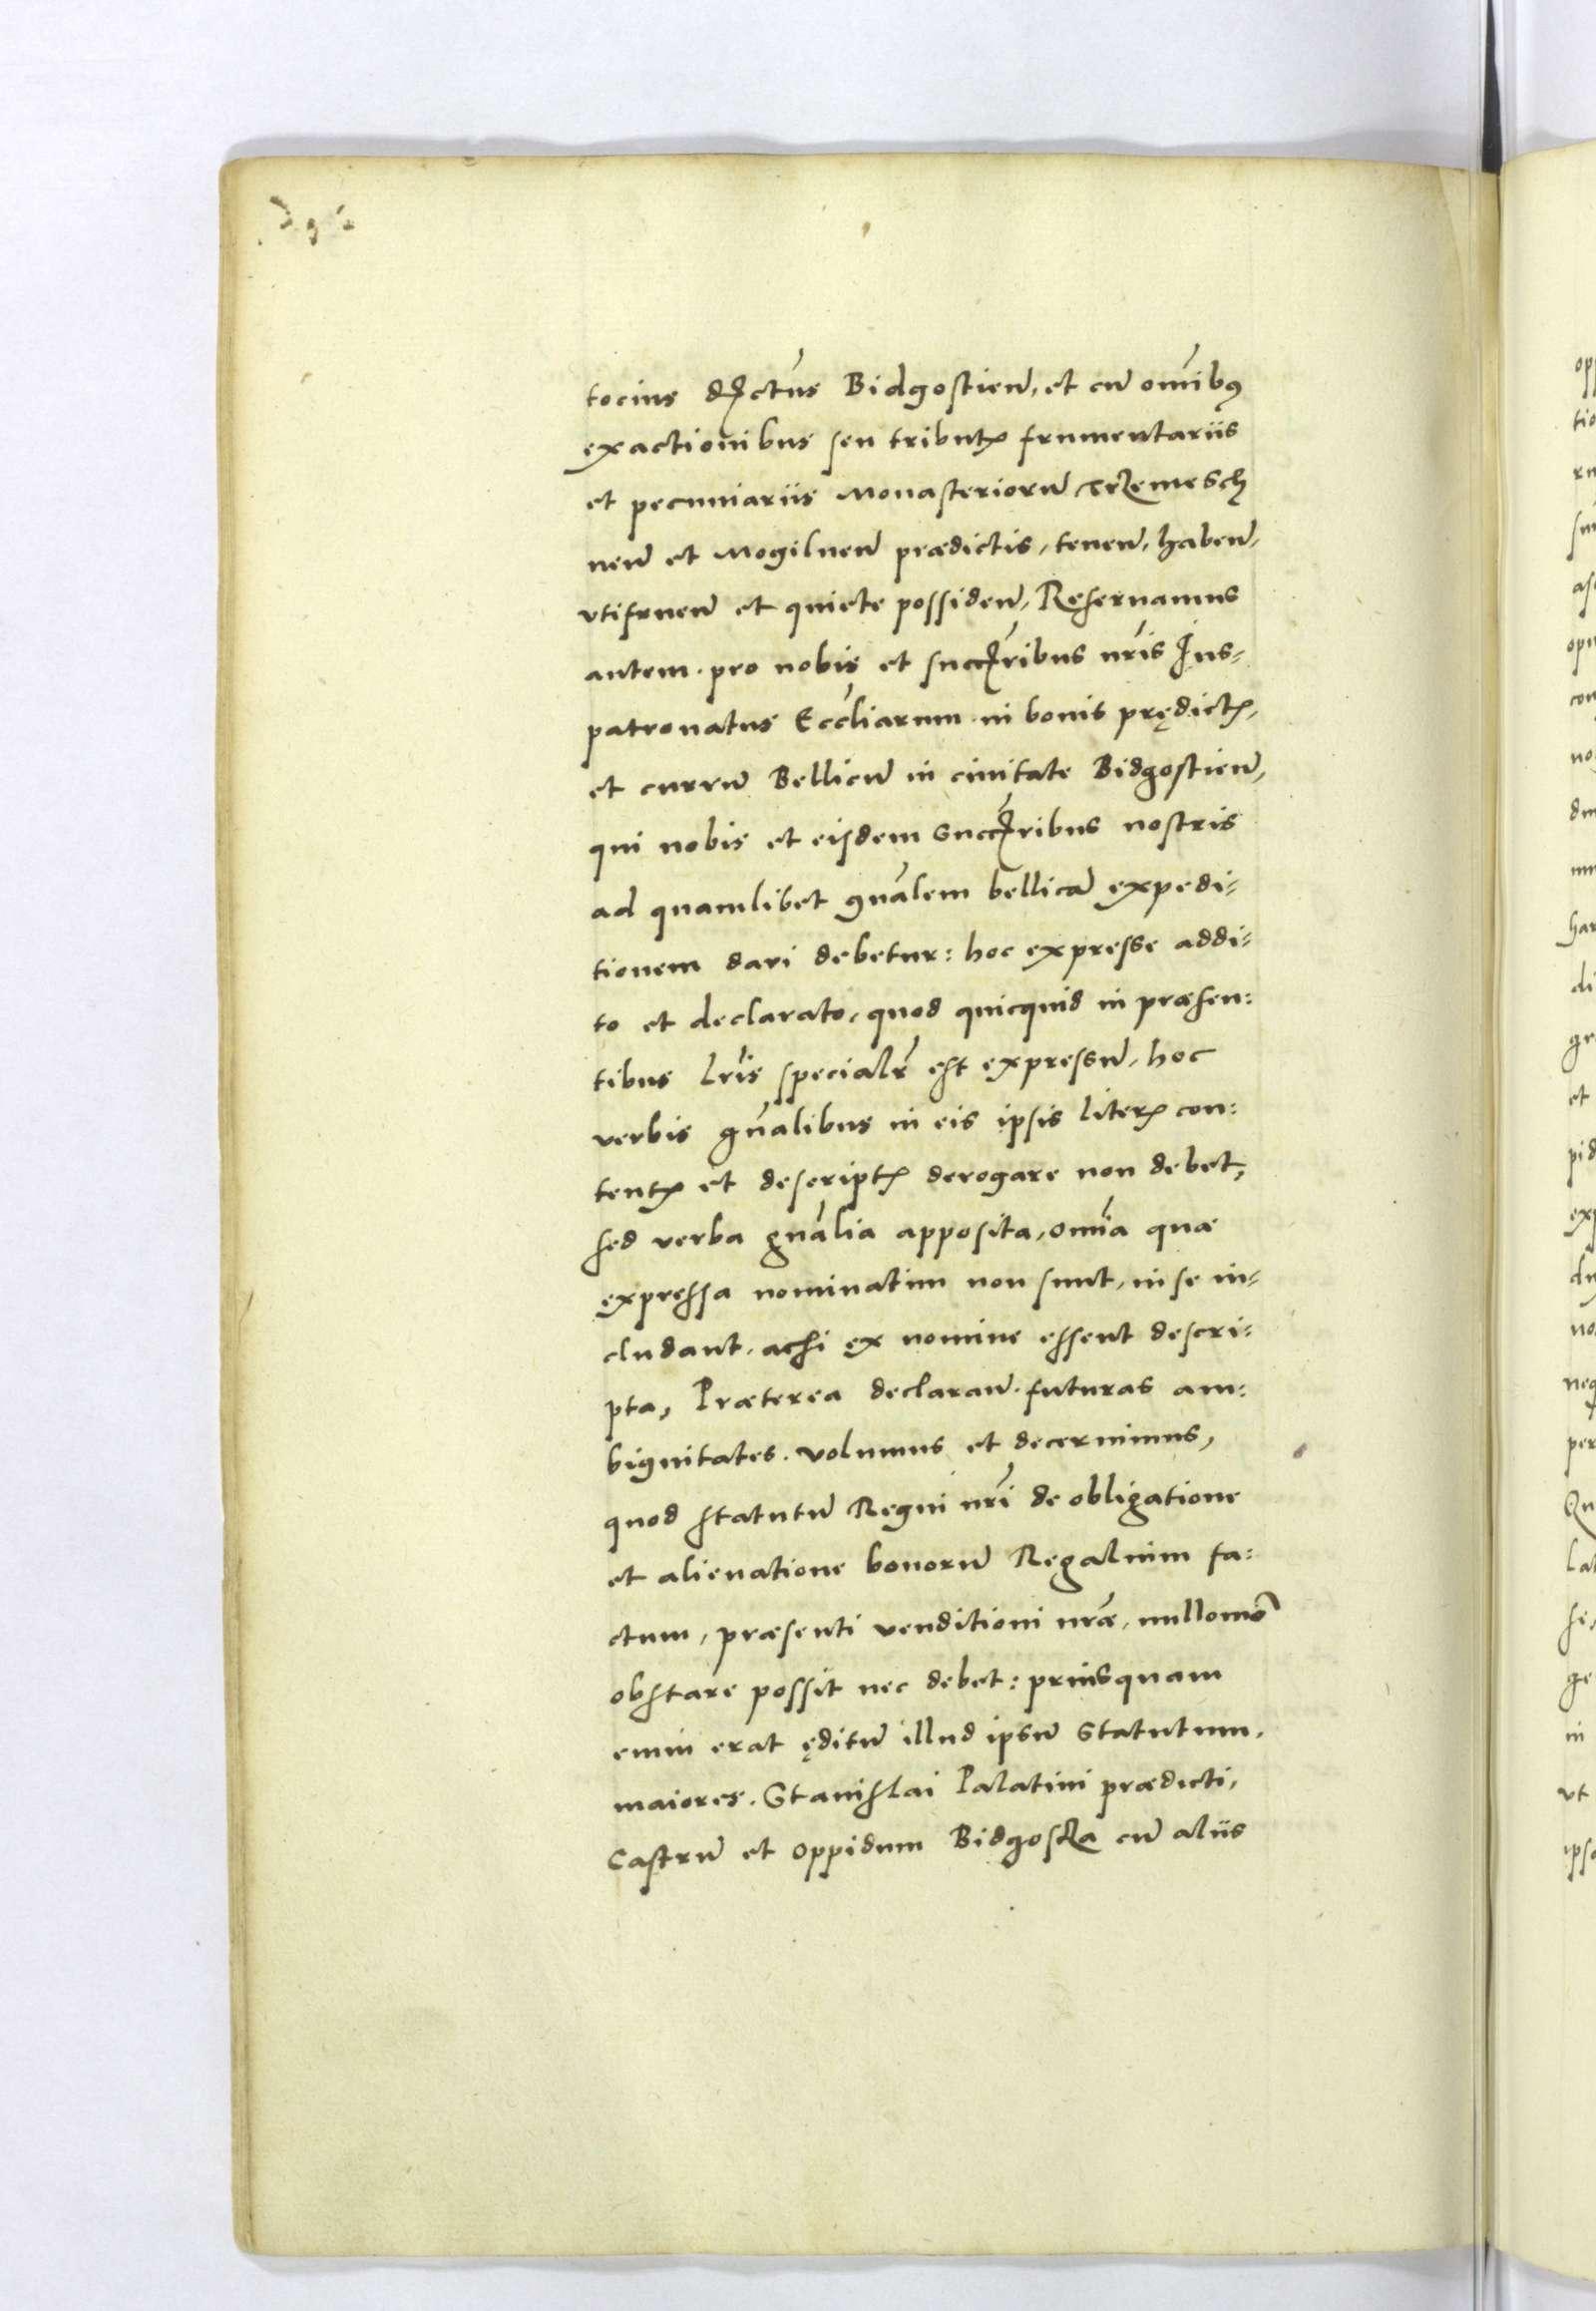 tocius dꝛctus Bidgostień, et cū omnibꝫ
exactionibus seu tributꝭ frumentariis
et pecuniariis Monasteriorū Trzemesch
neń et Mogilneń prædictis, teneń, habeń,
vtifrueń et quiete possideń, Reseruamus
autem. pro nobis et succꝛribus nr̃is Ius⸗
patronatus Eccl̃iarum in bonis prędictꝭ,
et currū Bellicū in ciuitate Bidgostień,
qui nobis et eisdem succꝛribus nostris
ad quamlibet gñalem bellicā expedi⸗
tionem dari debetur: hoc expresse addi⸗
to et declarato, quod quicquid in præsen:
tibus lr̃is specialr̃ est expressū, hoc
verbis gñalibus in eis ipsis literꝭ con:
tentꝭ et descriptꝭ derogare non debet,
sed verba gñalia apposita, omĩa quæ
expressa nominatim non sunt, in se in⸗
cludant. acsi ex nomine essent descri⸗
pta, Præterea declarań. futuras am:
biguitates. volumus et decernimus,
quod statutū Regni nr̃i de obligatione
et alienatione bonorū Regalium fa:
ctum, præsenti venditioni nr̃æ, nullomõ
obstare possit nec debet: priusquam
enim erat ęditū illud ipsū Statutum.
maiores. Stanislai Palatini prædicti,
Castrū et oppidum Bidgoscza cū aliis